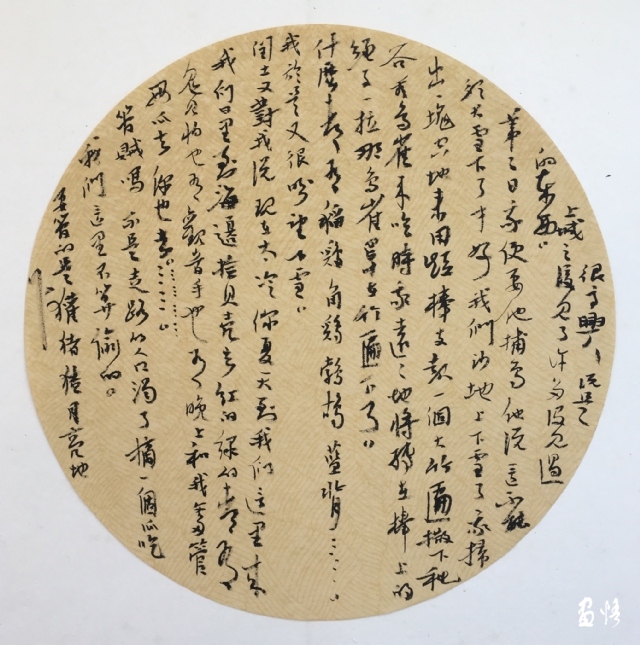 很高興，说是
上城之後見了许多没見過
的东西。
第二日我便要他捕鸟他说這不能
须大雪下了才好我们沙地上下雪了我掃
出一塊空地来用短棒支起一個大竹匾撒下秕
谷看鸟雀来吃時我遠遠地将缚在棒上的
绳子一拉那鸟雀就罩在竹匾下了。
什麼都有稻鸡角鸡鹁鸪蓝背……
我於是又很盼望下雪。
闰土又對我说现在太冷你夏天到我们這里来
我们日里到海邊拾貝壳去红的绿的都有
鬼見怕也有觀音手也有晚上和我爹管
西瓜去你也去……
管賊嗎不是走路的人口渴了摘一個瓜吃
我們這里不算偷的。
要管的是獾猪猬月亮地